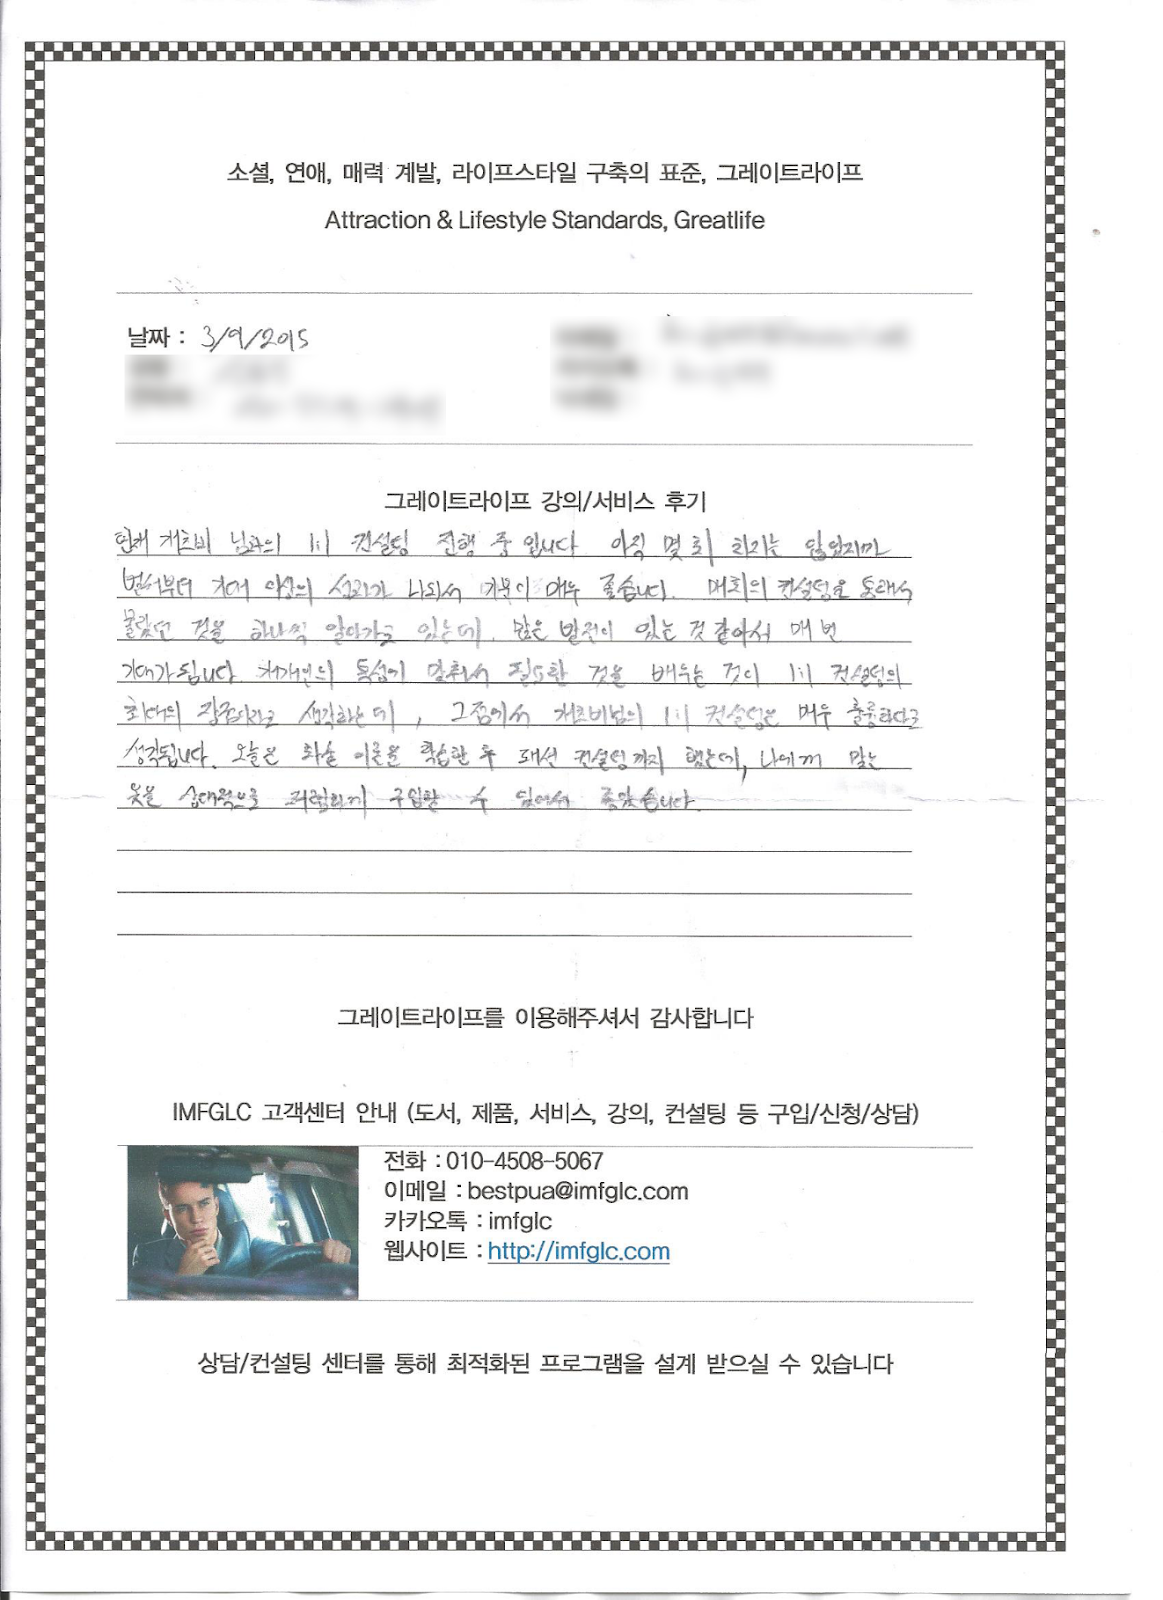 소셜, 연애, 매력 계발, 라이프스타일 구축의 표준, 그레이트라이프
Attraction & Lifestyle Standards, Greatlife
날짜 : 3/9/2015
그레이트라이프 강의/서비스 후기
현재 개츠비 님과의 1:1 컨설팅 진행 중 입니다 아직 몇 회 하지는 않았지만
벌써부터 기대 이상의 성과가 나와서 기분이 매우 좋습니다. 매회의 컨설팅을 통해서
몰랐던 것을 하나씩 알아가고 있는데, 많은 발전이 있는 것 같아서 매 번
기대가 됩니다. 각개인의 특성에 맞춰서 필요한 것을 배우는 것이 1:1 컨설팅의
최대의 장점이라고 생각하는데, 그점에서 개츠비님의 1:1 컨설팅은 매우 훌륭하다고
생각됩니다. 오늘은 화술 이론을 학습한 후 패션 컨설팅까지 했는데, 나에게 맞는
옷을 상대적으로 저렴하게 구입할 수 있어서 좋았습니다.
그레이트라이프를 이용해주셔서 감사합니다
IMFGLC 고객센터 안내 (도서, 제품, 서비스, 강의, 컨설팅 등 구입/신청/상담)
전화 : 010-4508-5067
이메일 : bestpua@imfglc.com
카카오톡 : imfglc
웹사이트 : http://imfglc.com
상담/컨설팅 센터를 통해 최적화된 프로그램을 설계 받으실 수 있습니다